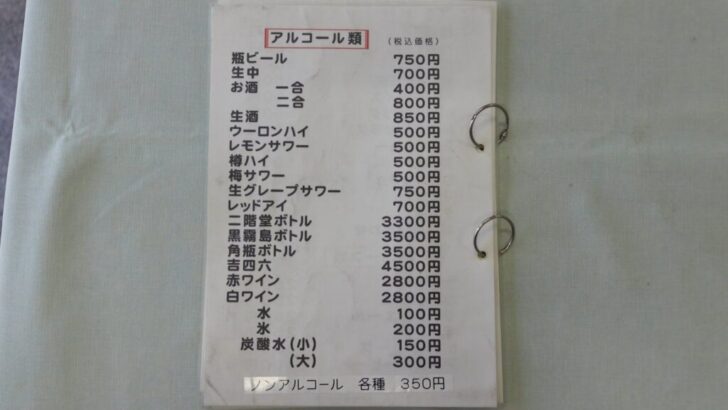 アルコール類 (税込価格)
瓶ビール 750円
生中 700円
お酒 一合 400円
二合 800円
生酒 850円
ウーロンハイ 500円
レモンサワー 500円
樽ハイ 500円
梅サワー 500円
生グレープサワー 750円
レッドアイ 700円
二階堂ボトル 3300円
黒霧島ボトル 3500円
角瓶ボトル 3500円
吉四六 4500円
赤ワイン 2800円
白ワイン 2800円
水 100円
氷 200円
炭酸水(小) 150円
(大) 300円
ノンアルコール 各種 350円